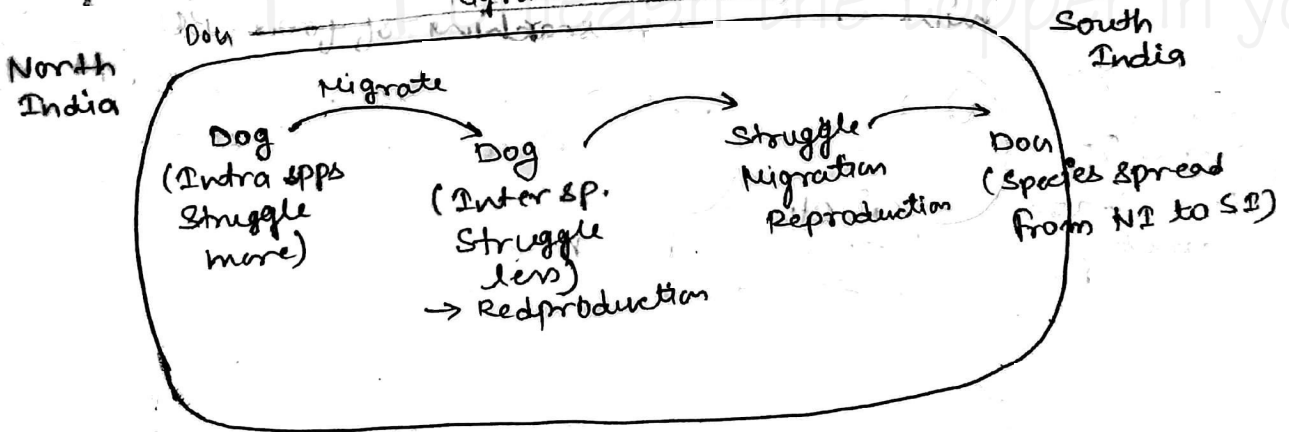 Dog
South
India
North
India
Migrate
Dog
(Intra spps
Struggle
more)
Dog
(Inter sp.
Struggle
less)
→ Redproduction
Struggle
Migration
Reproduction
Dog
(Species spread
from NI to SI)